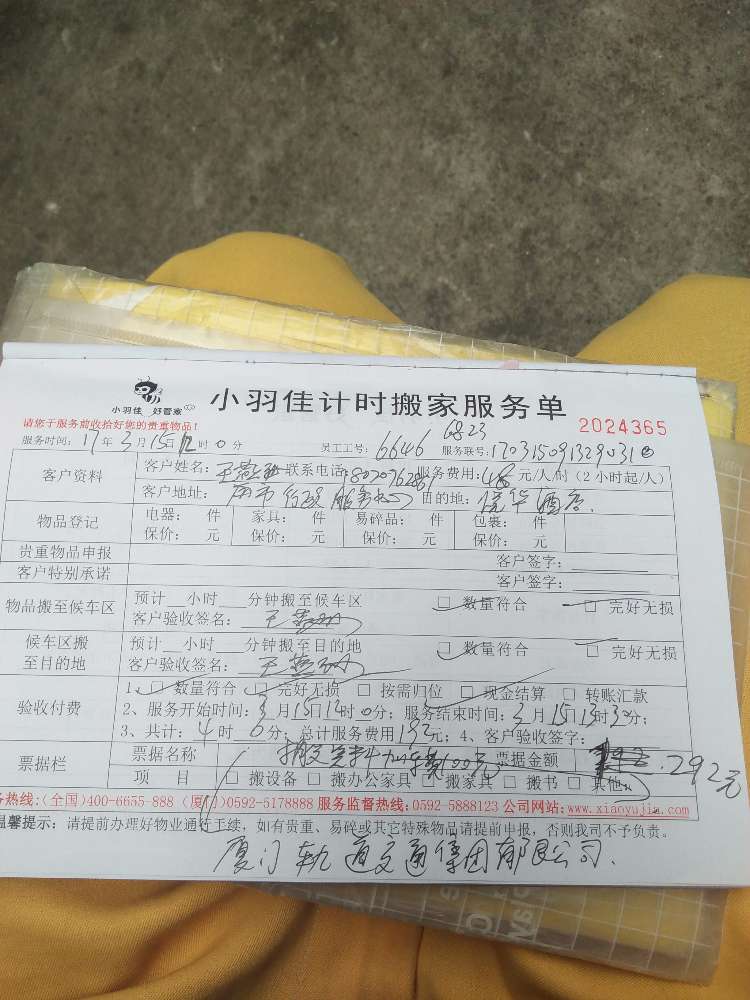 小羽佳 好管家 小羽佳计时搬家服务单
请您于服务前收拾好您的贵重物品! 2024365
服务时间: 17年3月15日12时0分 员工工号: 6646 6823 服务联号: 170315091329031
客户资料 客户姓名: 联系电话: 服务费用: 48元/人/时 (2小时起/人)
客户地址: 服务中心 目的地: 悦华酒店.
物品登记 电器: 件 家具: 件 易碎品: 件 包裹: 件
保价: 元 保价: 元 保价: 元 保价: 元
贵重物品申报 客户签字:
客户特别承诺 客户签字:
物品搬至候车区 预计__小时___分钟搬至候车区 □ 数量符合 □ 完好无损
客户验收签名:
候车区搬至目的地 预计__小时___分钟搬至目的地 □ 数量符合 □ 完好无损
客户验收签名:
验收付费 1、□ 数量符合 □ 完好无损 □ 按需归位 □ 现金结算 □ 转账汇款
2、服务开始时间: 3月15日12时0分; 服务结束时间: 3月15日13时30分;
3、共计: 4时0分; 总计服务费用192元; 4、客户验收签字:
票据栏 票据名称 票据金额 292元
项 目 □ 搬设备 □ 搬办公家具 □ 搬家具 □ 搬书 □ 其他
务热线:(全国)400-6655-888 (厦门)0592-5178888 服务监督热线: 0592-5888123 公司网站: www.xiaoyujia.com
温馨提示: 请提前办理好物业通行手续, 如有贵重、易碎或其它特殊物品请提前申报, 否则我司不予负责。
厦门轨道交通集团有限公司.